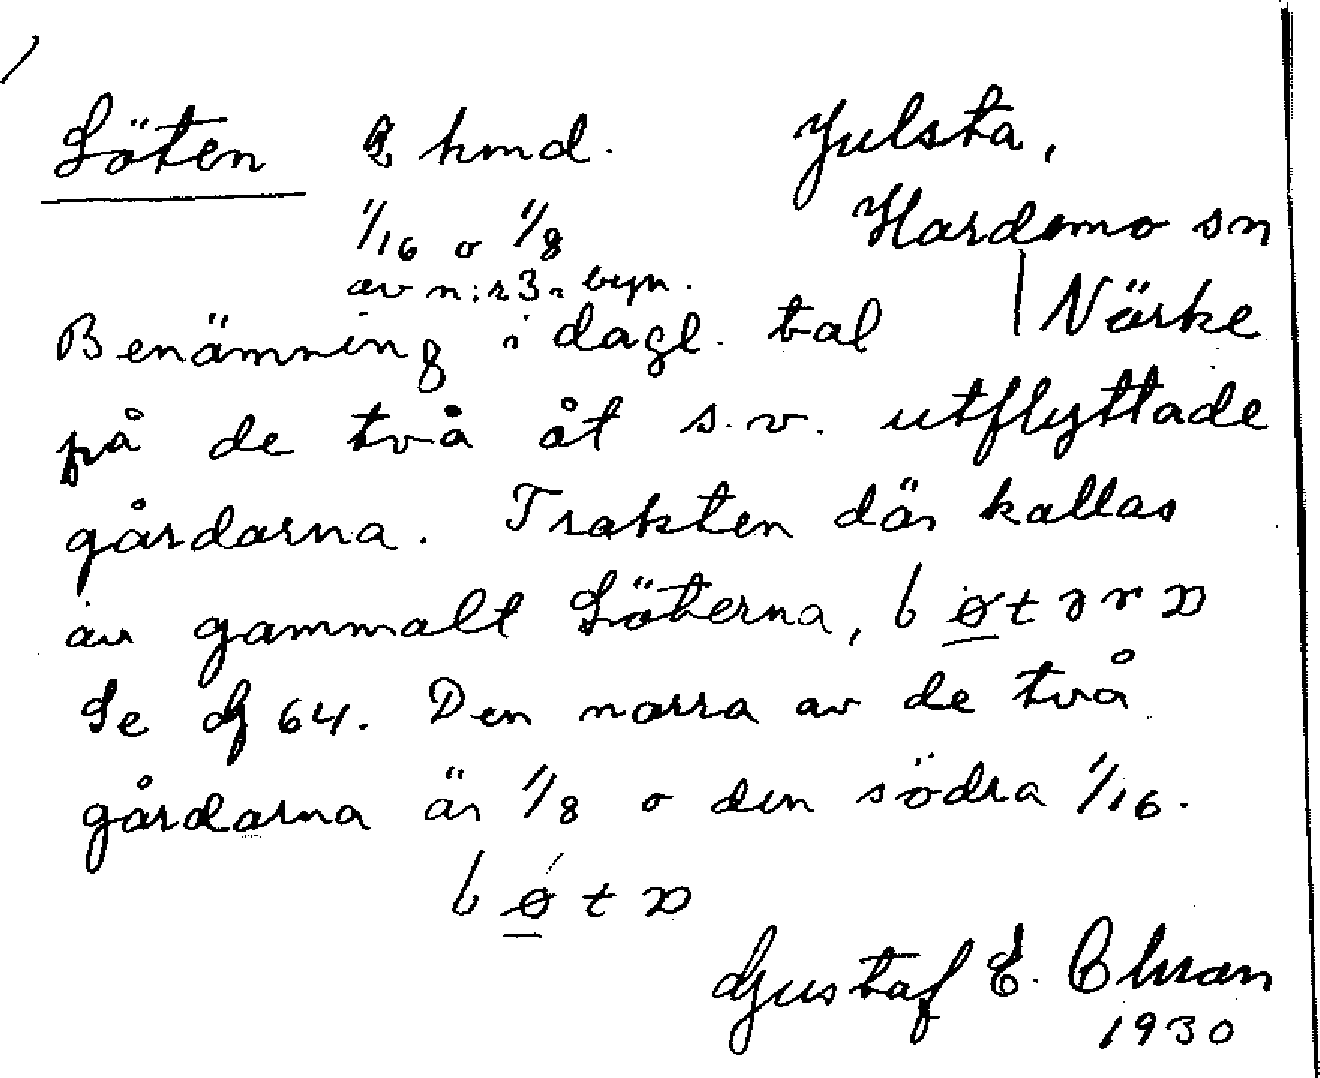 Löten 2 hmd. Yulsta,
1/16 o 1/8 Hardemo sn
av n:r 3 i byn.
Benämning i dagl. tal Närke
på de två åt s.v. utflyttade
gårdarna. Trakten där kallas
av gammalt Löterna,
Se 64. Den norra av de två
gårdarna är 1/8 o den södra 1/16.
Gustaf E.
1930